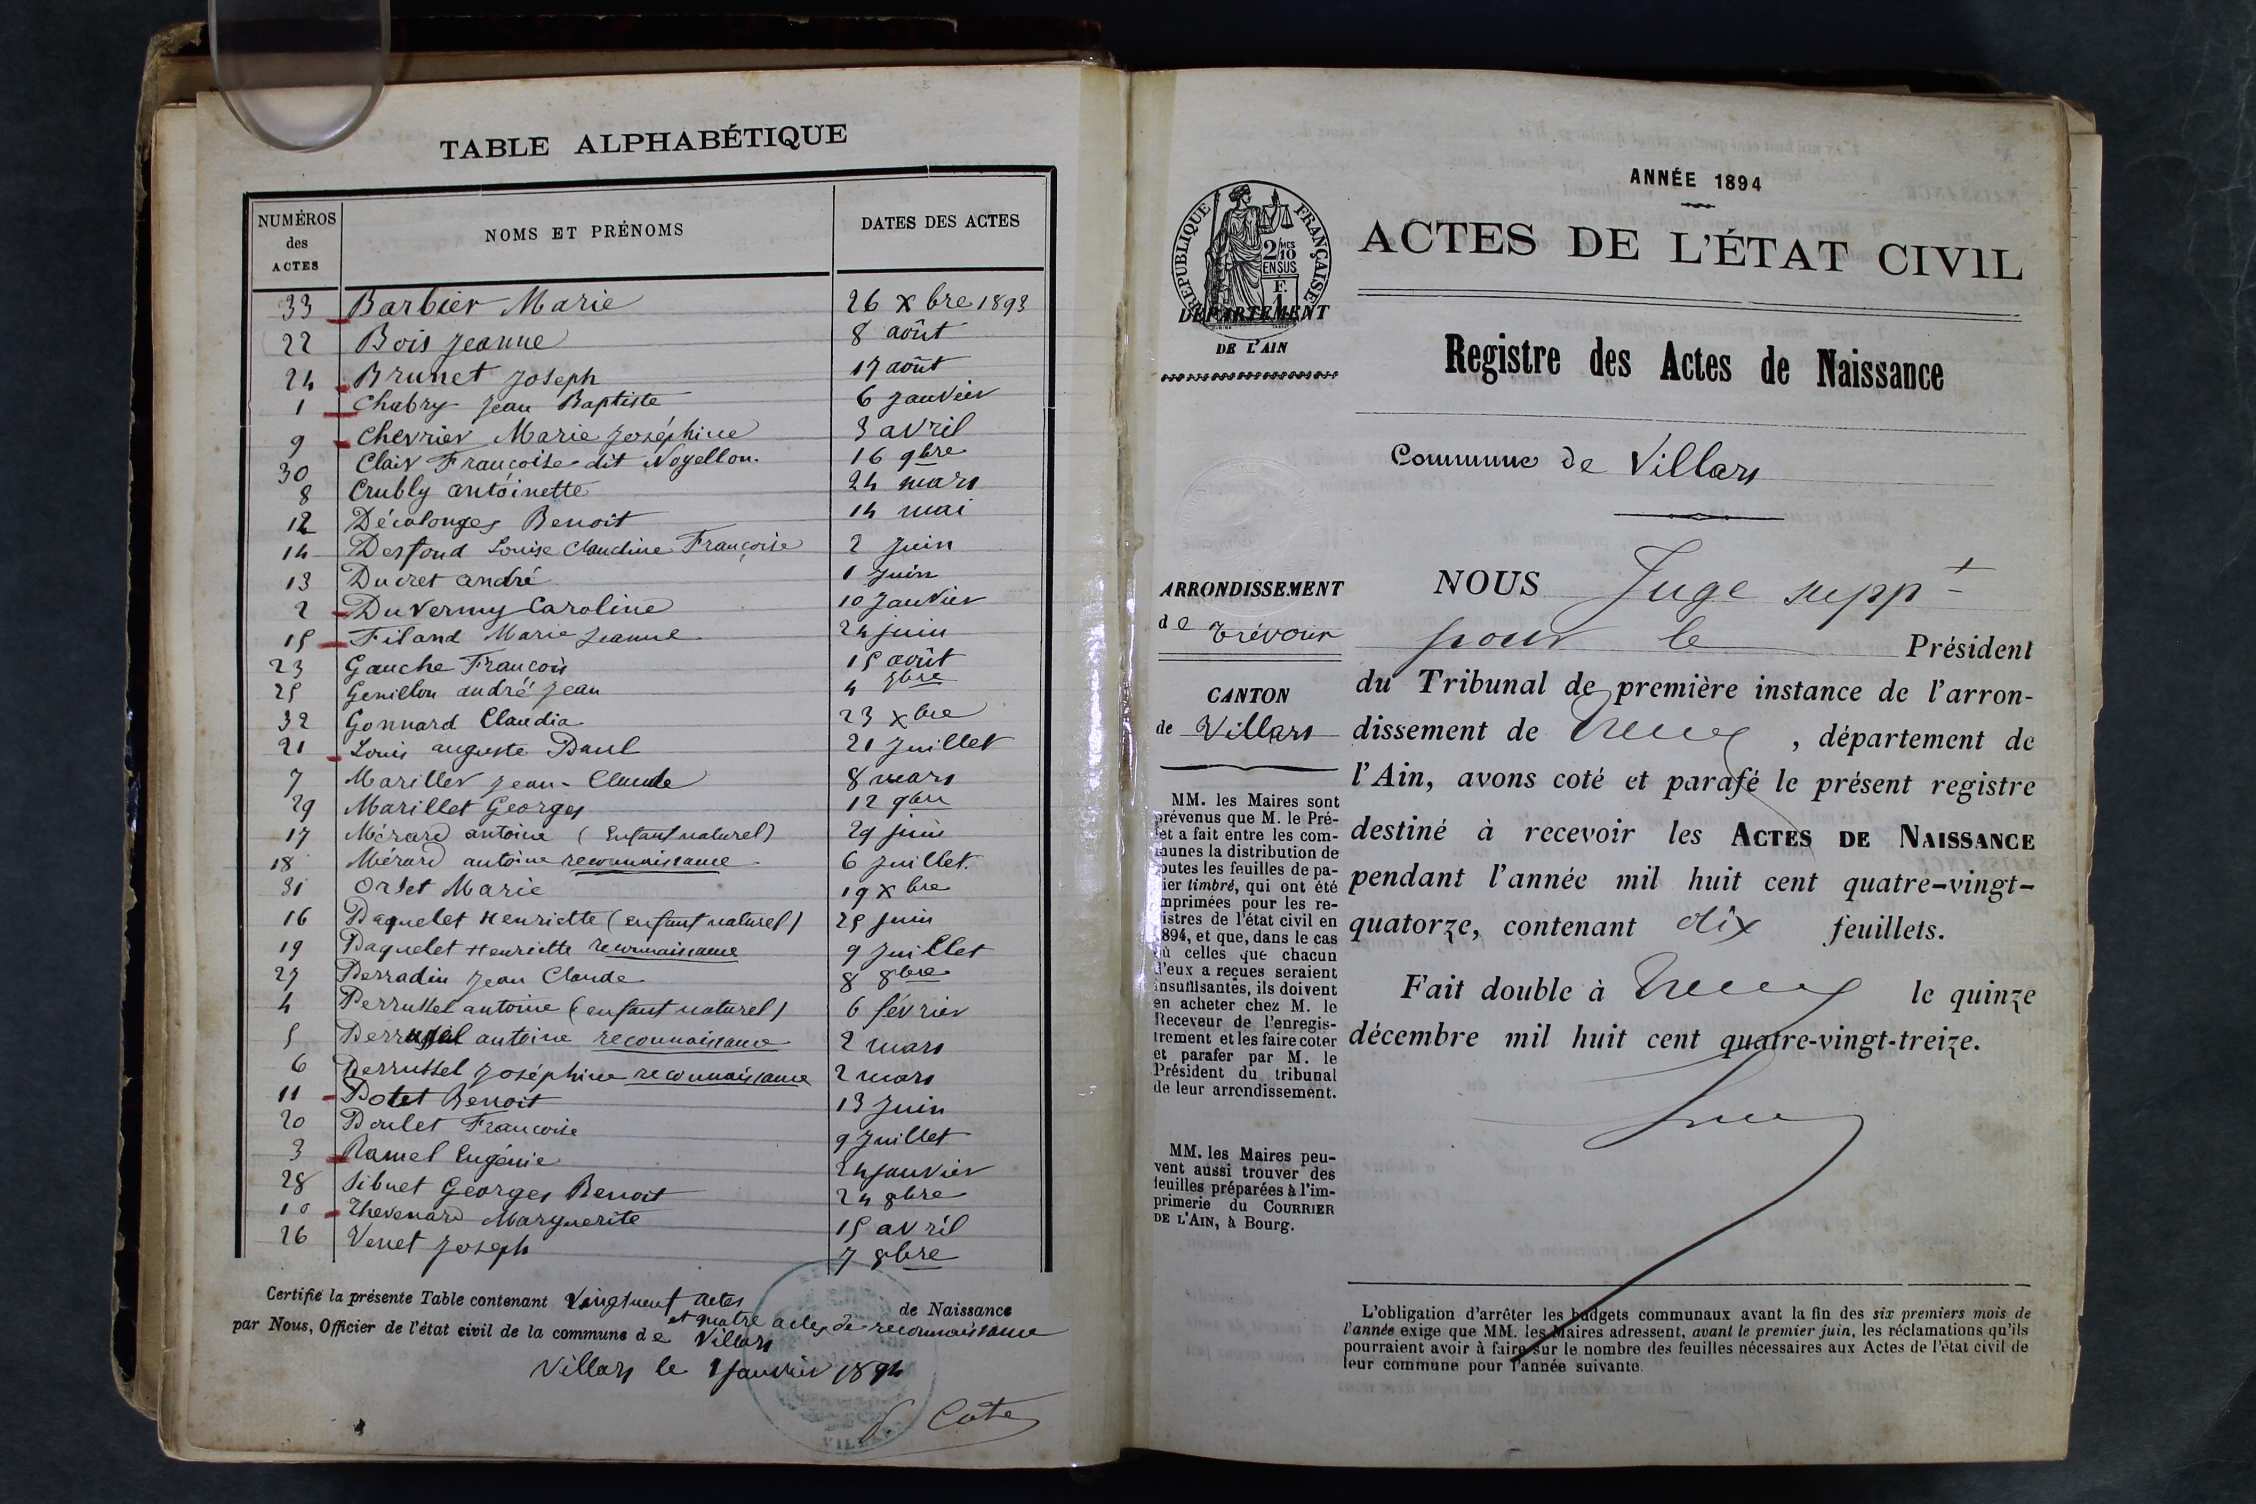 TABLE ALPHABÉTIQUE
NUMÉROS des ACTES | NOMS ET PRÉNOMS | DATES DES ACTES
33 Barbier Marie 26 xbre 1893
22 Bois Jeanne 8 août
24 Brunet Joseph 17 août
1 Chabry Jean Baptiste 6 Janvier
9 Chevrier Marie Joséphine 3 avril
30 Clair Françoise dit Noyellon 16 9bre
8 Crubly antoinette 24 mars
12 Décolonges Benoit 14 mai
14 Desfond Louise Claudine Françoise 2 Juin
13 Ducret andré 1 Juin
2 Duvernay Caroline 10 Janvier
15 Filand Marie Jeanne 24 juin
23 Gauche François 15 août
25 Genillon andré Jean 4 7bre
32 Gonnard Claudia 23 xbre
21 Louis auguste Paul 21 Juillet
7 Mariller Jean-Claude 8 mars
29 Marillet Georges 12 9bre
17 Mérard antoine (Enfant naturel) 29 juin
18 Mérard antoine reconnaissance 6 Juillet
31 Orset Marie 19 xbre
16 Paquelet Henriette (enfant naturel) 25 juin
19 Paquelet Henriette reconnaissance 9 Juillet
27 Perradin Jean Claude 8 8bre
4 Perrussel antoine (enfant naturel) 6 février
5 Perrussel antoine reconnaissance 2 mars
6 Perrussel Joséphine reconnaissance 2 mars
11 Potet Benoit 13 Juin
20 Poulet Françoise 9 Juillet
3 Ramel Eugénie 24 Janvier
28 Sibuet Georges Benoit 24 8bre
10 Thevenard Marguerite 15 avril
26 Venet Joseph 7 8bre
Certifié la présente Table contenant vingt neuf actes de Naissance
et quatre actes de reconnaissance
par Nous, Officier de l'état civil de la commune de Villars
Villars le 1 Janvier 1894
Cote
ANNÉE 1894
ACTES DE L'ÉTAT CIVIL
RÉPUBLIQUE FRANÇAISE
2/10 MES EN SUS
F. 1
DÉPARTEMENT
DE L'AIN
Registre des Actes de Naissance
Commune de Villars
ARRONDISSEMENT
de Trévoux
CANTON
de Villars
MM. les Maires sont
prévenus que M. le Pré-
fet a fait entre les com-
munes la distribution de
toutes les feuilles de pa-
pier timbré, qui ont été
imprimées pour les re-
gistres de l'état civil en
1894, et que, dans le cas
où celles que chacun
d'eux a reçues seraient
insuffisantes, ils doivent
en acheter chez M. le
Receveur de l'enregis-
trement et les faire coter
et parafer par M. le
Président du tribunal
de leur arrondissement.
MM. les Maires peu-
vent aussi trouver des
feuilles préparées à l'im-
primerie du COURRIER
DE L'AIN, à Bourg.
NOUS Juge suppt
pour le Président
du Tribunal de première instance de l'arron-
dissement de Trévoux, département de
l'Ain, avons coté et parafé le présent registre
destiné à recevoir les ACTES DE NAISSANCE
pendant l'année mil huit cent quatre-vingt-
quatorze, contenant dix feuillets.
Fait double à Trévoux le quinze
décembre mil huit cent quatre-vingt-treize.
L'obligation d'arrêter les budgets communaux avant la fin des six premiers mois de
l'année exige que MM. les Maires adressent, avant le premier juin, les réclamations qu'ils
pourraient avoir à faire sur le nombre des feuilles nécessaires aux Actes de l'état civil de
leur commune pour l'année suivante.